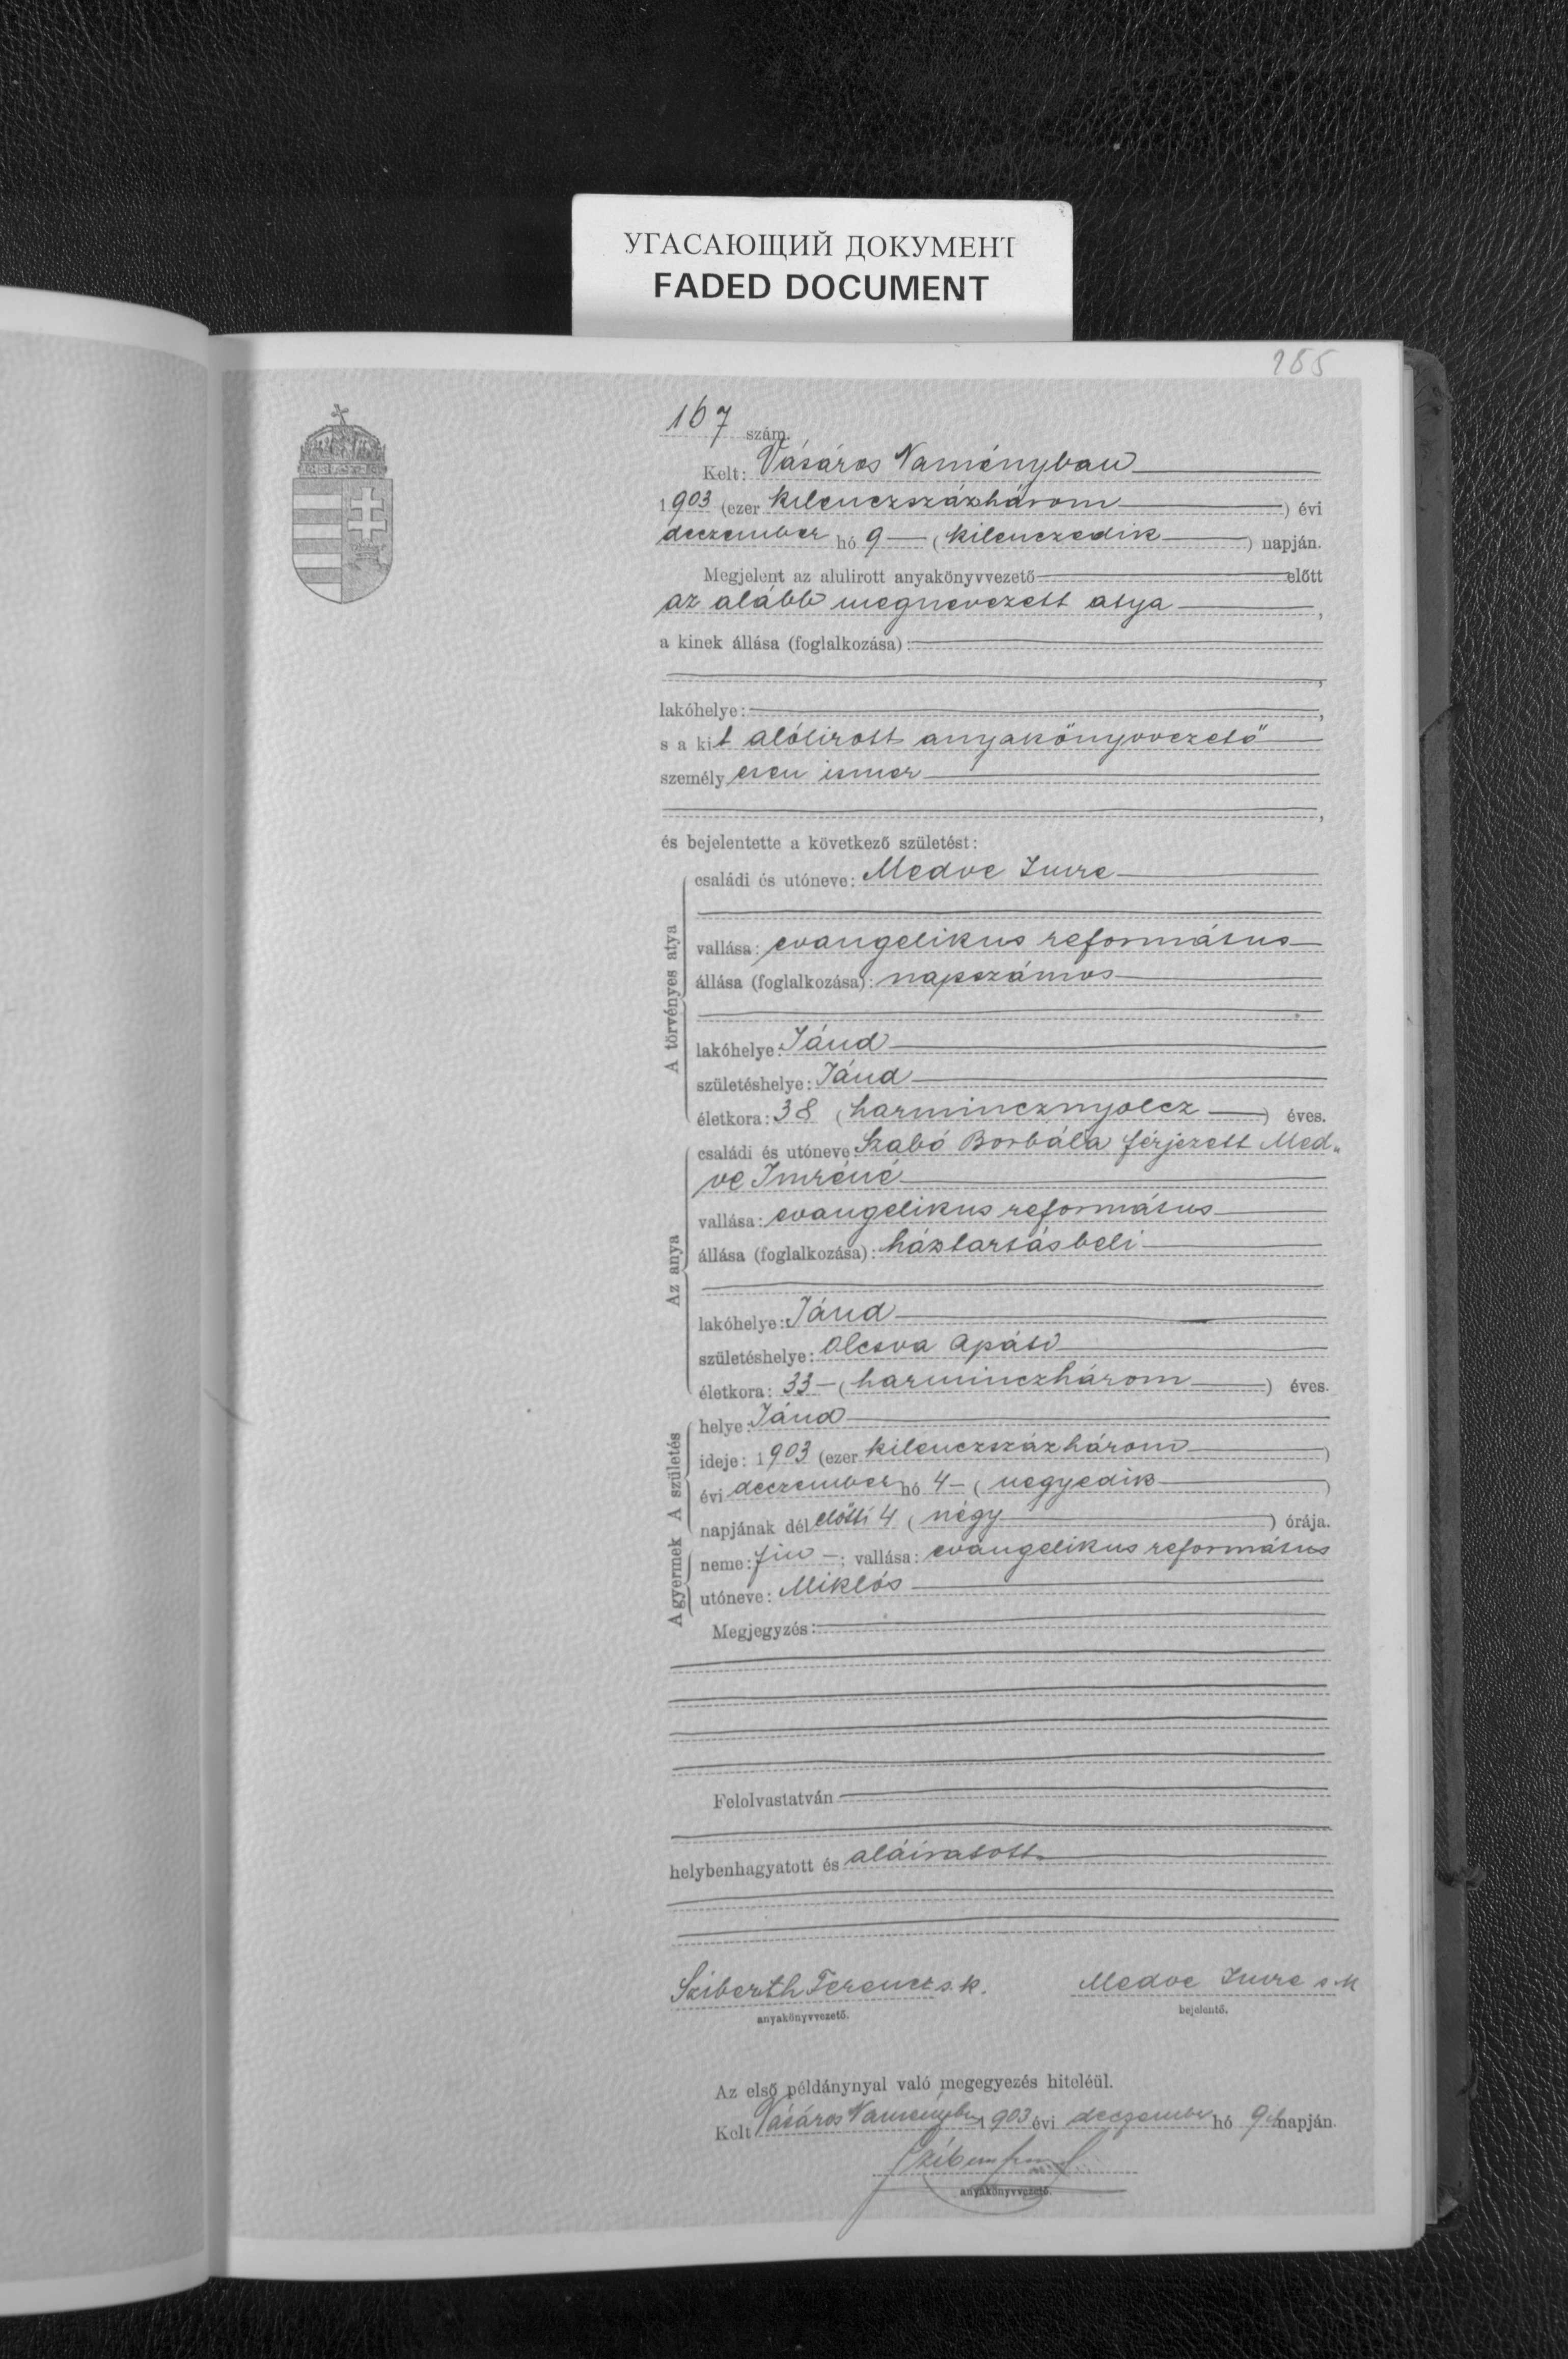 УГАСАЮЩИЙ ДОКУМЕНТ
FADED DOCUMENT
185
167 szám.
Kelt: Vásáros Naményban
1903 (ezer kilenczszázhárom) évi
deczember hó 9 (kilenczedik) napján.
Megjelent az alulirott anyakönyvvezető előtt
az alább megnevezett atya,
a kinek állása (foglalkozása):
,
lakóhelye: ,
s a kit alólirott anyakönyvvezető
személyesen ismer
,
és bejelentette a következő születést:
A törvényes atya
családi és utóneve: Medve Imre
vallása: evangelikus református
állása (foglalkozása): napszámos
lakóhelye: Jánd
születéshelye: Jánd
életkora: 38 (harmincznyolcz) éves.
Az anya
családi és utóneve: Szabó Borbála férjezett Med„
ve Imréné
vallása: evangelikus református
állása (foglalkozása): háztartásbeli
lakóhelye: Jánd
születéshelye: Olcsva Apáti
életkora: 33 (harminczhárom) éves.
A születés
helye: Jánd
ideje: 1903 (ezer kilenczszázhárom)
évi deczember hó 4 (negyedik)
napjának délelőtti 4 (négy) órája.
A gyermek
neme: fiu; vallása: evangelikus református
utóneve: Miklós
Megjegyzés:
Felolvastatván
helybenhagyatott és aláiratott.
Sziberth Ferencz s.k. Medve Imre s.k
anyakönyvvezető. bejelentő.
Az első példánynyal való megegyezés hiteléül.
Kelt Vásáros Naményban 1903 évi deczember hó 9 napján.
anyakönyvvezető.